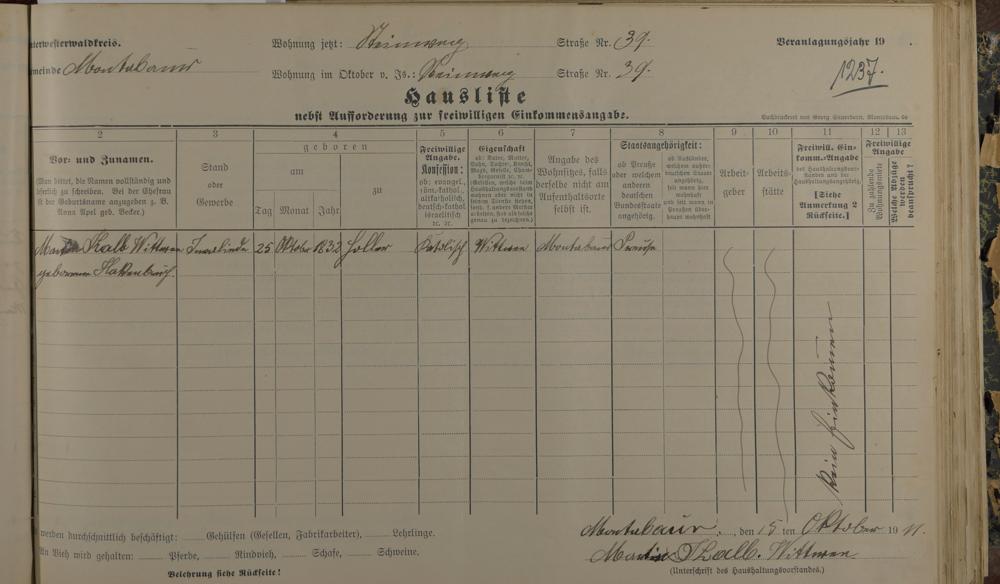 nterwesterwaldkreis.
Wohnung jetzt: Steinweg Straße Nr. 39.
Veranlagungsjahr 19 .
meinde Montabaur
Wohnung im Oktober v. Js.: Steinweg Straße Nr. 39.
1237.
Hausliste
nebst Aufforderung zur freiwilligen Einkommensangabe.
2
3
4
5
6
7
8
9
10
11
12
13
Vor- und Zunamen.
(Man bittet, die Namen vollständig und
leserlich zu schreiben. Bei der Ehefrau
ist der Geburtsname anzugeben z. B.
Anna Apel geb. Becker.)
Stand
oder
Gewerbe
geboren
am
zu
Tag
Monat
Jahr
Freiwillige
Angabe.
Konfession:
ob: evangel.,
röm.-kathol.,
altkatholisch,
deutsch-kathol.
israelitisch
Eigenschaft
ob: Vater, Mutter,
Angabe des
Wohnsitzes, falls
derselbe nicht am
Aufenthaltsorte
selbst ist.
Staatsangehörigkeit:
ob Preuße
oder welchem
anderen
deutschen
Bundesstaate
angehörig.
ob Ausländer,
Arbeit-
geber
Arbeits-
stätte
Freiwill. Ein-
komm.-Angabe
[Siehe
Anmerkung 2
Rückseite.]
Freiwillige
Angabe
Welche Abzüge
werden
beansprucht?
Kalb Wittwen
25 Oktober 1832 Holler
Katolisch
Wittwen
Montabaur
Preuße
kein Einkomen
werden durchschnittlich beschäftigt: Gehülfen (Gesellen, Fabrikarbeiter), Lehrlinge.
An Vieh wird gehalten: Pferde, Rindvieh, Schafe, Schweine.
Belehrung siehe Rückseite!
Montabaur, den 15 ten Oktober 19 11.
Kalb. Wittwen
(Unterschrift des Haushaltungsvorstandes.)